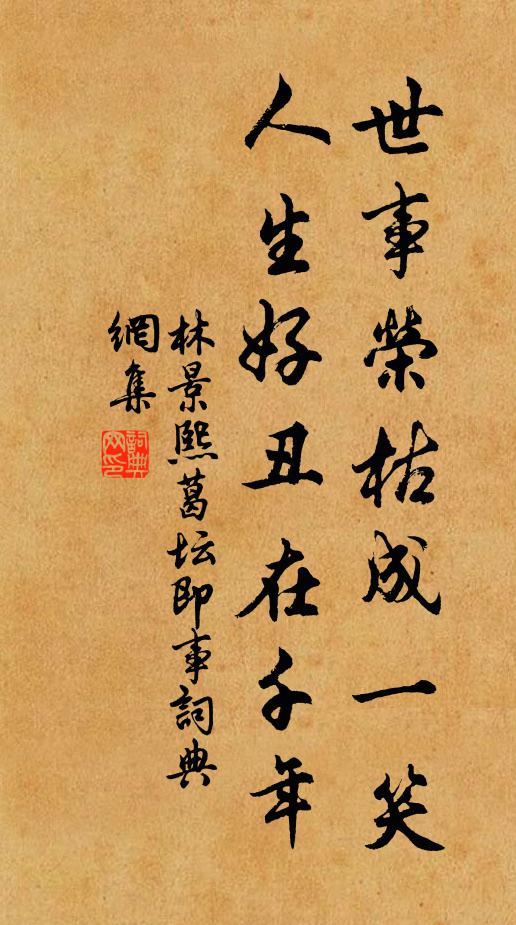 世事榮枯成一笑
人生好丑在千年
林景熙葛坛即事詞典
網集
詞典
网印